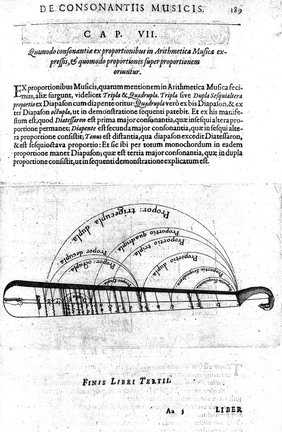 DE CONSONANTIIS MUSICIS. 189
CAP. VII.
Quomodo consonantiæ ex proportionibus in Arithmetica Musica ex-
pressis, & quomodo proportiones super proportionem
oriuntur.
EX proportionibus Musicis, quarum mentionem in Arithmetica Musica feci-
mus, aliæ surgunt, videlicet Tripla & Quadrupla. Tripla sive Dupla Sesquialtera
proportio ex Diapason cum diapente oritur: Quadrupla verò ex bis Diapason, & ex
ter Diapason octupla, ut in demonstratione sequenti patebit. Et ex his manife-
stum est, quod Diatessaron est prima major consonantia, quæ in sesquialtera pro-
portione permanet; Diapente est secunda major consonantia, quæ in sesquialte-
ra proportione consistit; Tonus est distantia, qua diapason excedit Diatessaron,
& est sesquioctava proportio: Et sic ibi per totum monochordum in eadem
proportione manet Diapason; quæ est tertia major consonantia, quæ in dupla
proportione consistit, ut in sequenti demonstratione explicatum est.
Propor: trigecupla dupla
Proportio quadrupla
Proportio tripla
Propor: decupla
Propor: octupla
Proportio dupla
FINIS LIBRI TERTII.
Aa 3 LIBER